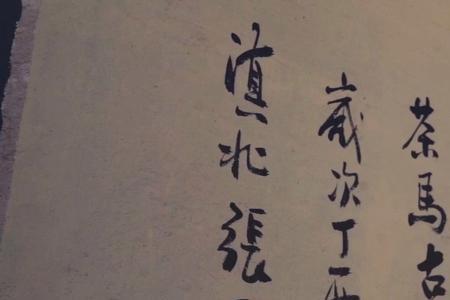 茶馬古
歲次丁
滇北張